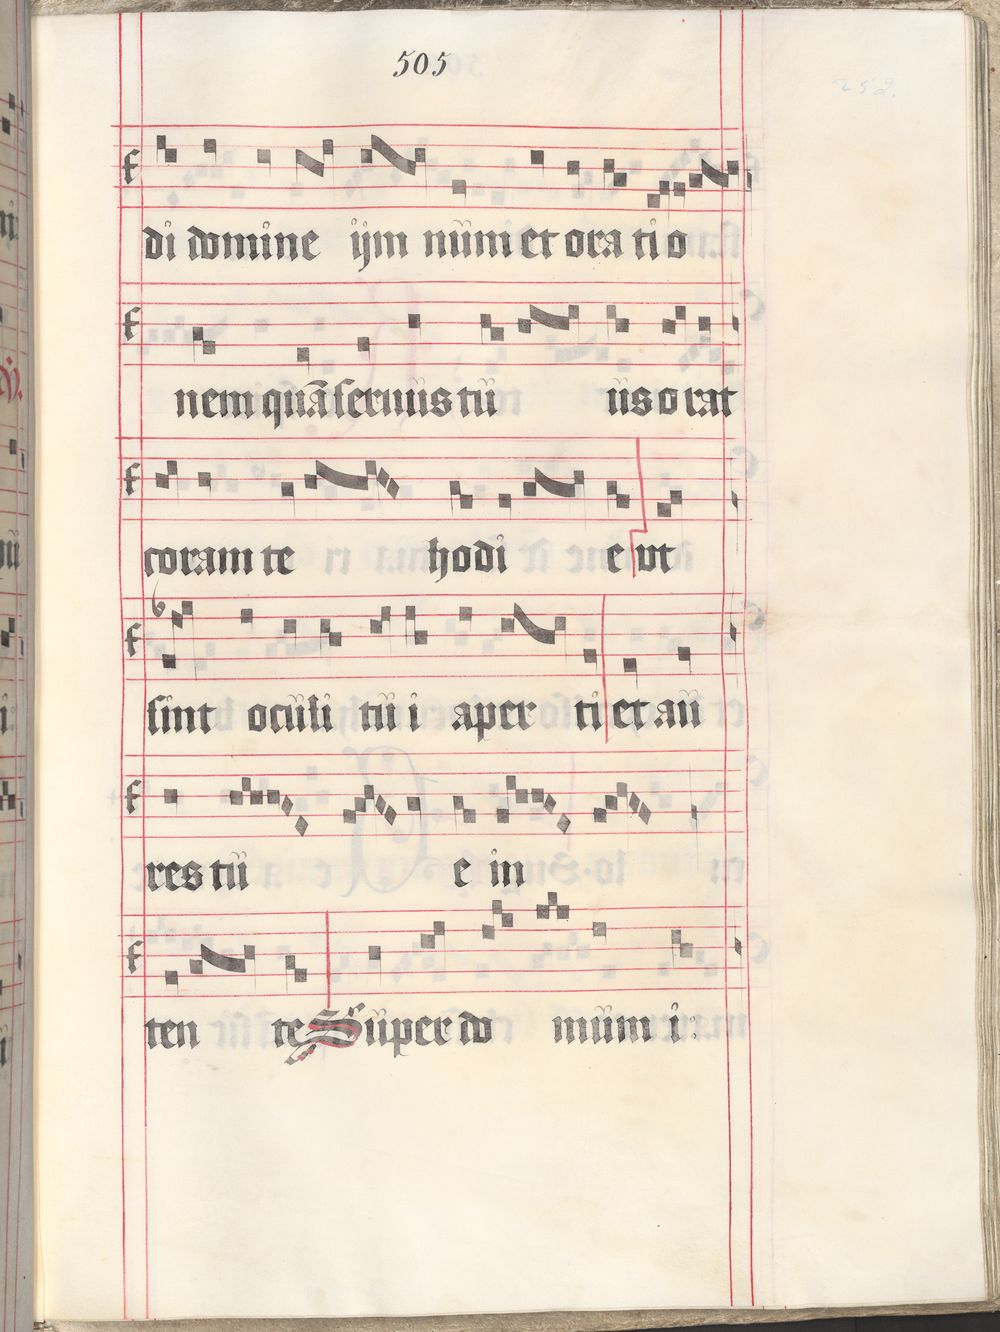 505
252.
di domine ijm num et ora tio
nem quā seruus tu us o rat
coram te hodi e vt
sint oculi tui aper ti et au
res tu e in
ten te Super do mum i